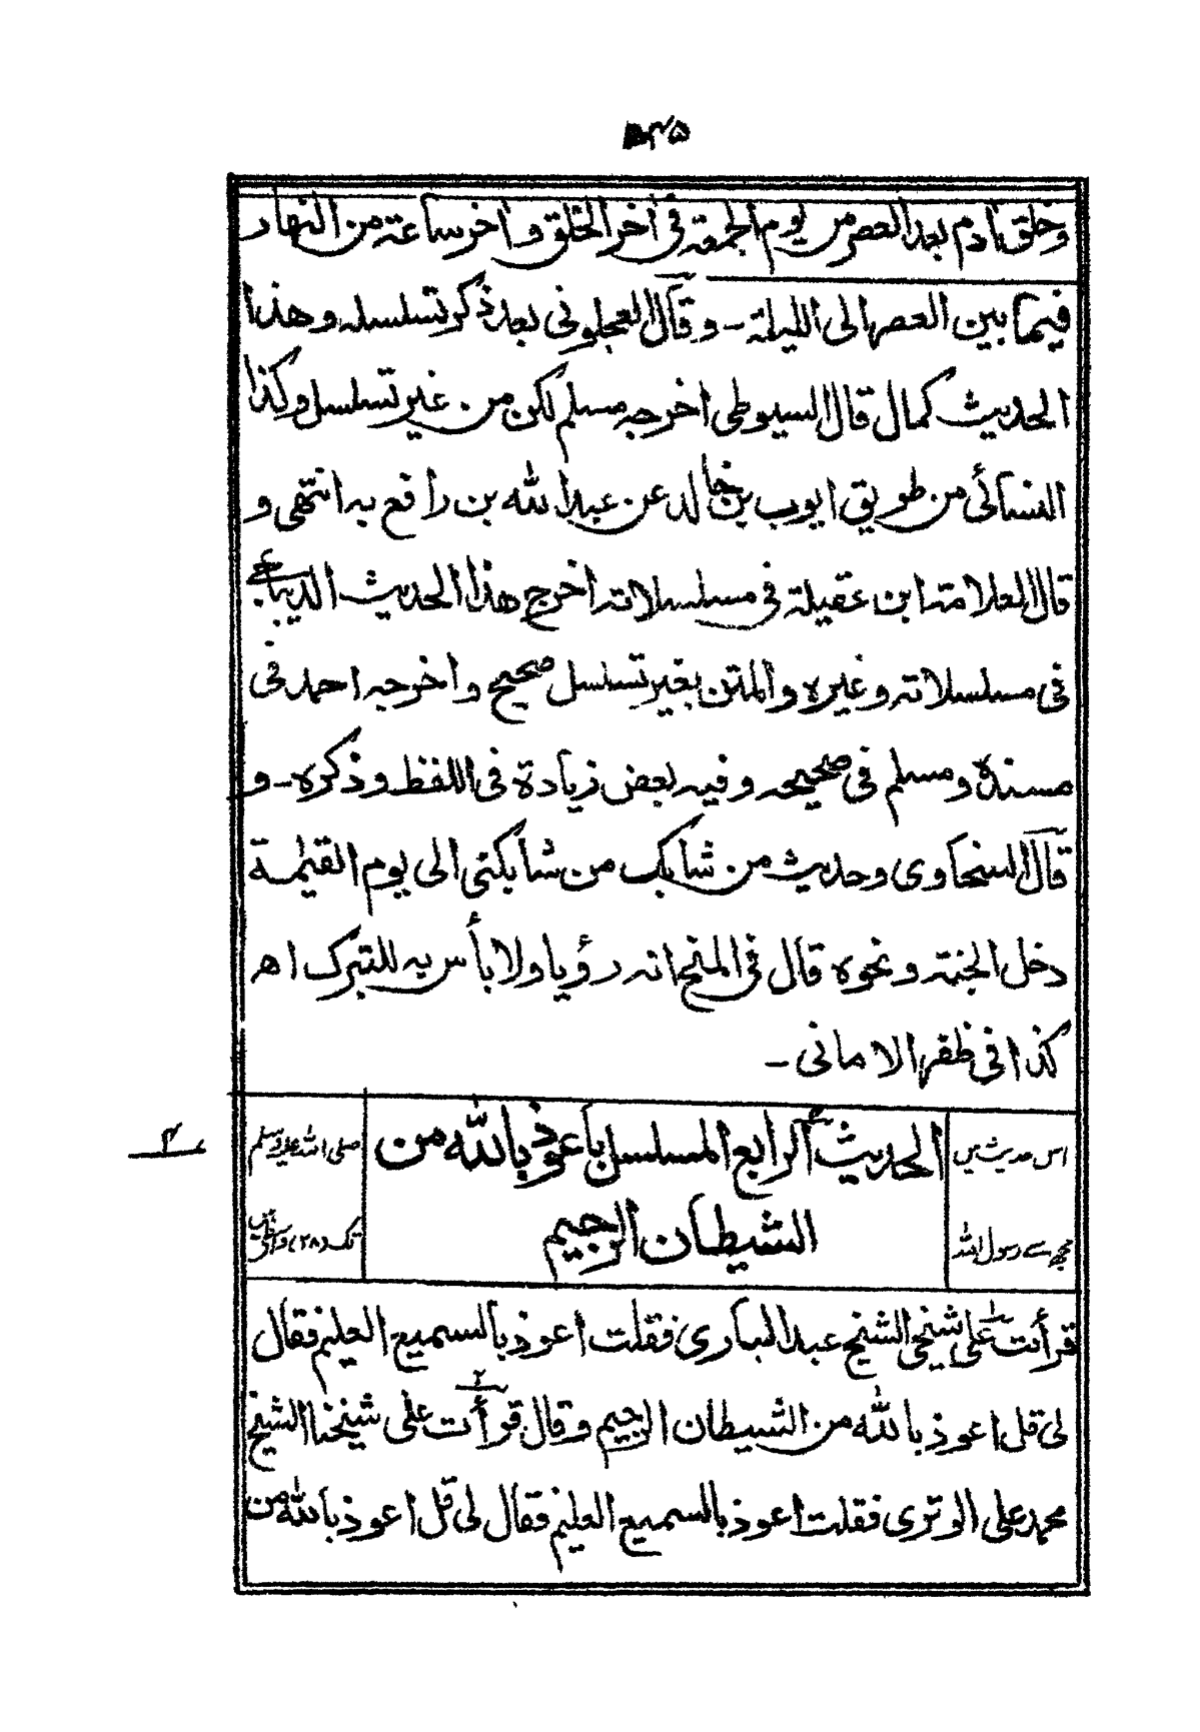 ۴۵
وخلق اٰدم بعد العصر من يوم الجمعة فى اٰخر الخلق واٰخر ساعة من النهار
فيما بين العصر الى الليلة ـ وقال العجلونى بعد ذكر تسلسله وهذا
الحديث كمال قال السيوطى اخرجه مسلم لكن من غير تسلسل وكذا
النسائى من طريق ايوب بن خالد عن عبد الله بن رافع به انتهى و
قال العلامة ابن عقيلة فى مسلسلاته اخرج هذا الحديث الديباجى
فى مسلسلاته وغيره والمتن بغير تسلسل صحيح واخرجه احمد فى
مسنده ومسلم فى صحيحه وفيه بعض زيادة فى اللفظ وذكره ـ و
قال السخاوى وحديث من شابك من شابكنى الى يوم القيٰمة
دخل الجنة ونحوه قال فى المنح انه رؤيا ولا بأس به للتبرك اھ
كذا فى ظفر الامانى ـ
اس حدیث میں
مجھ سے رسول اللہ
الحديث الرابع المسلسل بأعوذ بالله من
الشيطان الرجيم
صلی اللہ علیہ وسلم
تک (۲۸)
قرأت على شيخى الشيخ عبد البارى فقلت اعوذ بالسميع العليم فقال
لى قل اعوذ بالله من الشيطان الرجيم وقال قرأت على شيخنا الشيخ
محمد على الوترى فقلت اعوذ بالسميع العليم فقال لى قل اعوذ بالله من